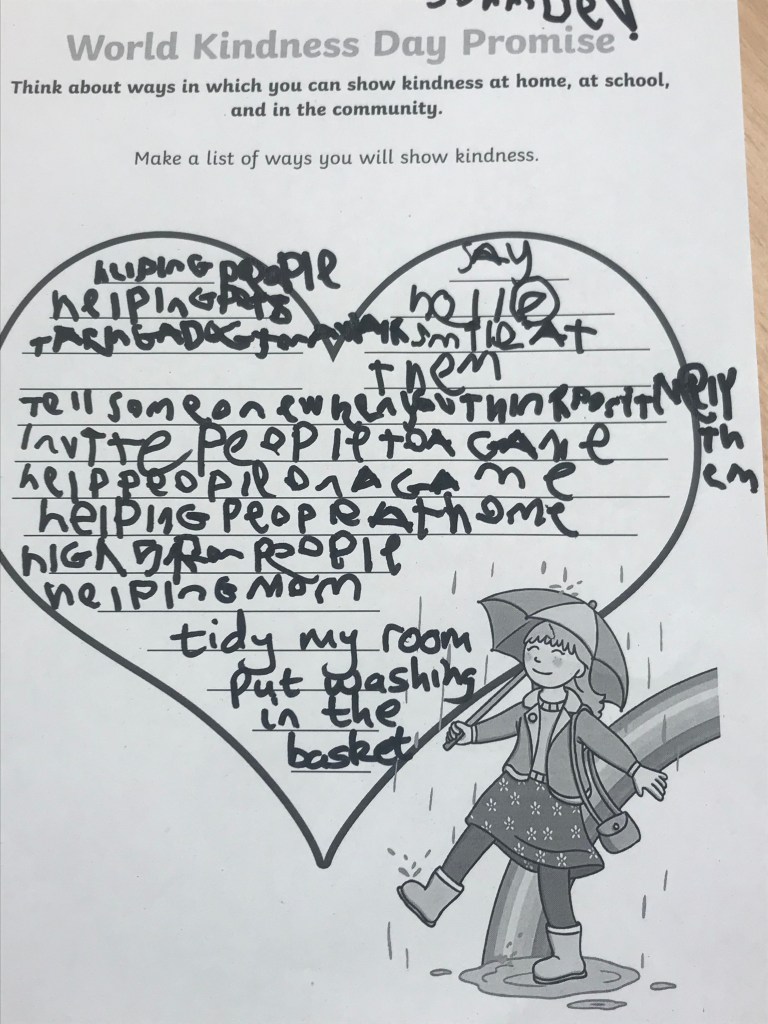 World Kindness Day Promise
Think about ways in which you can show kindness at home, at school,
and in the community.
Make a list of ways you will show kindness.
people
helping pets
TAKING A DOG for A WAlk
SAY
hello
smile At
them
Tell someone when you Think Positively
th
em
Invite People to A GAme
help people on A GAme
helping People At home
high 5 for People
helping mom
tidy my room
put washing
in the
basket